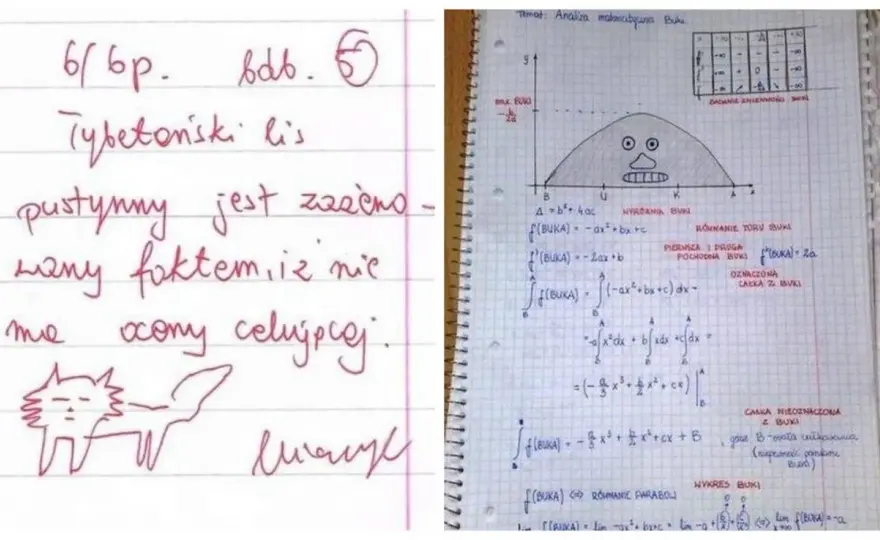 6/6p. bdb. 5
Tybetański lis
pustynny jest zażeno-
wany faktem, iż nie
ma oceny celującej.
Temat: Analiza matematyczna Buki.
y
max BUKI
-b/2a
B U K A x
BADANIE ZMIENNOŚCI BUKI
Δ = b² + 4ac WYRÓŻNIK BUKI
f(BUKA) = -ax² + bx + c RÓWNANIE TORU BUKI
f'(BUKA) = -2ax + b PIERWSZA I DRUGA POCHODNA BUKI f"(BUKA) = 2a
OZNACZONA CAŁKA Z BUKI
∫ f(BUKA) = ∫ (-ax² + bx + c) dx =
A A A
= -a∫x²dx + b∫xdx + c∫dx =
B B B
= (-a/3 x³ + b/2 x² + cx) |
A
B
CAŁKA NIEOZNACZONA Z BUKI
∫ f(BUKA) = -a/3 x³ + b/2 x² + cx + B , gdzie B - stała całkowania
BUKI)
WYKRES BUKI
f(BUKA) ⇔ RÓWNANIE PARABOLI
lim f(BUKA) = lim -ax² + bx + c = lim -a + b/x + c/x² ⇔ lim f(BUKA) = -a